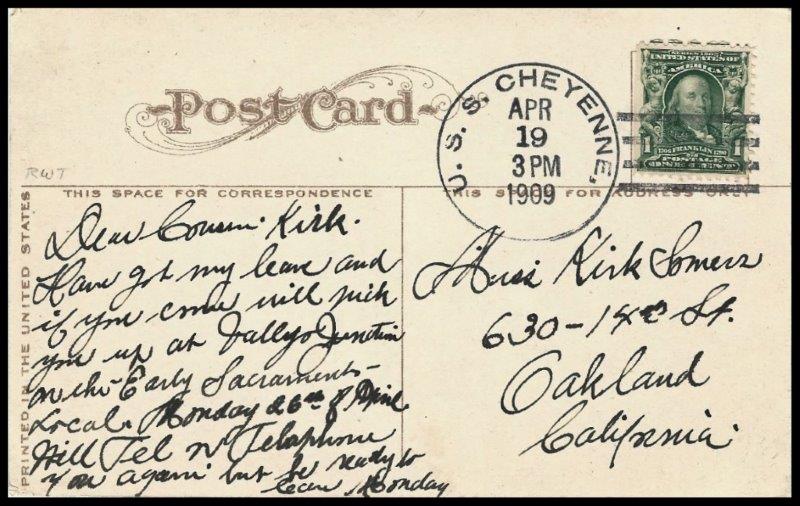 Post Card
U.S.S. CHEYENNE,
APR
19
3 PM
1909
SERIES 1902
UNITED STATES OF
AMERICA
1 1
1706 FRANKLIN 1790
POSTAGE
ONE CENT
RWT
THIS SPACE FOR CORRESPONDENCE
THIS SPACE FOR ADDRESS ONLY
PRINTED IN THE UNITED STATES
Dear Cousin Kirk.
Have got my leave and
if you come will pick
you up at Vallyo Junction
on the Early Sacramento
Local. Monday 26th of April
Will Tel or Telephone
you again but be ready to
leave Monday
Miss Kirk Somers
630-14th St.
Oakland
California.